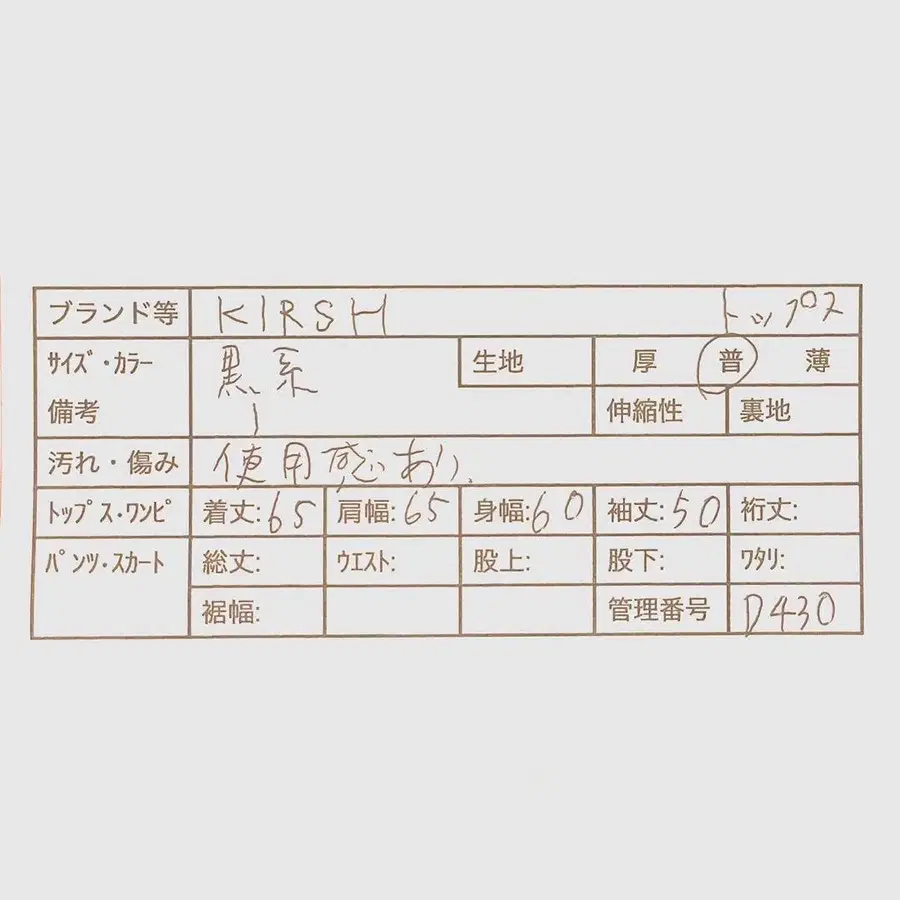 ブランド等 KIRSH トップス
サイズ・カラー 黒系 生地 厚 普 薄
備考 伸縮性 裏地
汚れ・傷み 使用感あり、
トップス・ワンピ 着丈:65 肩幅:65 身幅:60 袖丈:50 裄丈:
パンツ・スカート 総丈: ウエスト: 股上: 股下: ワタリ:
裾幅: 管理番号 D430